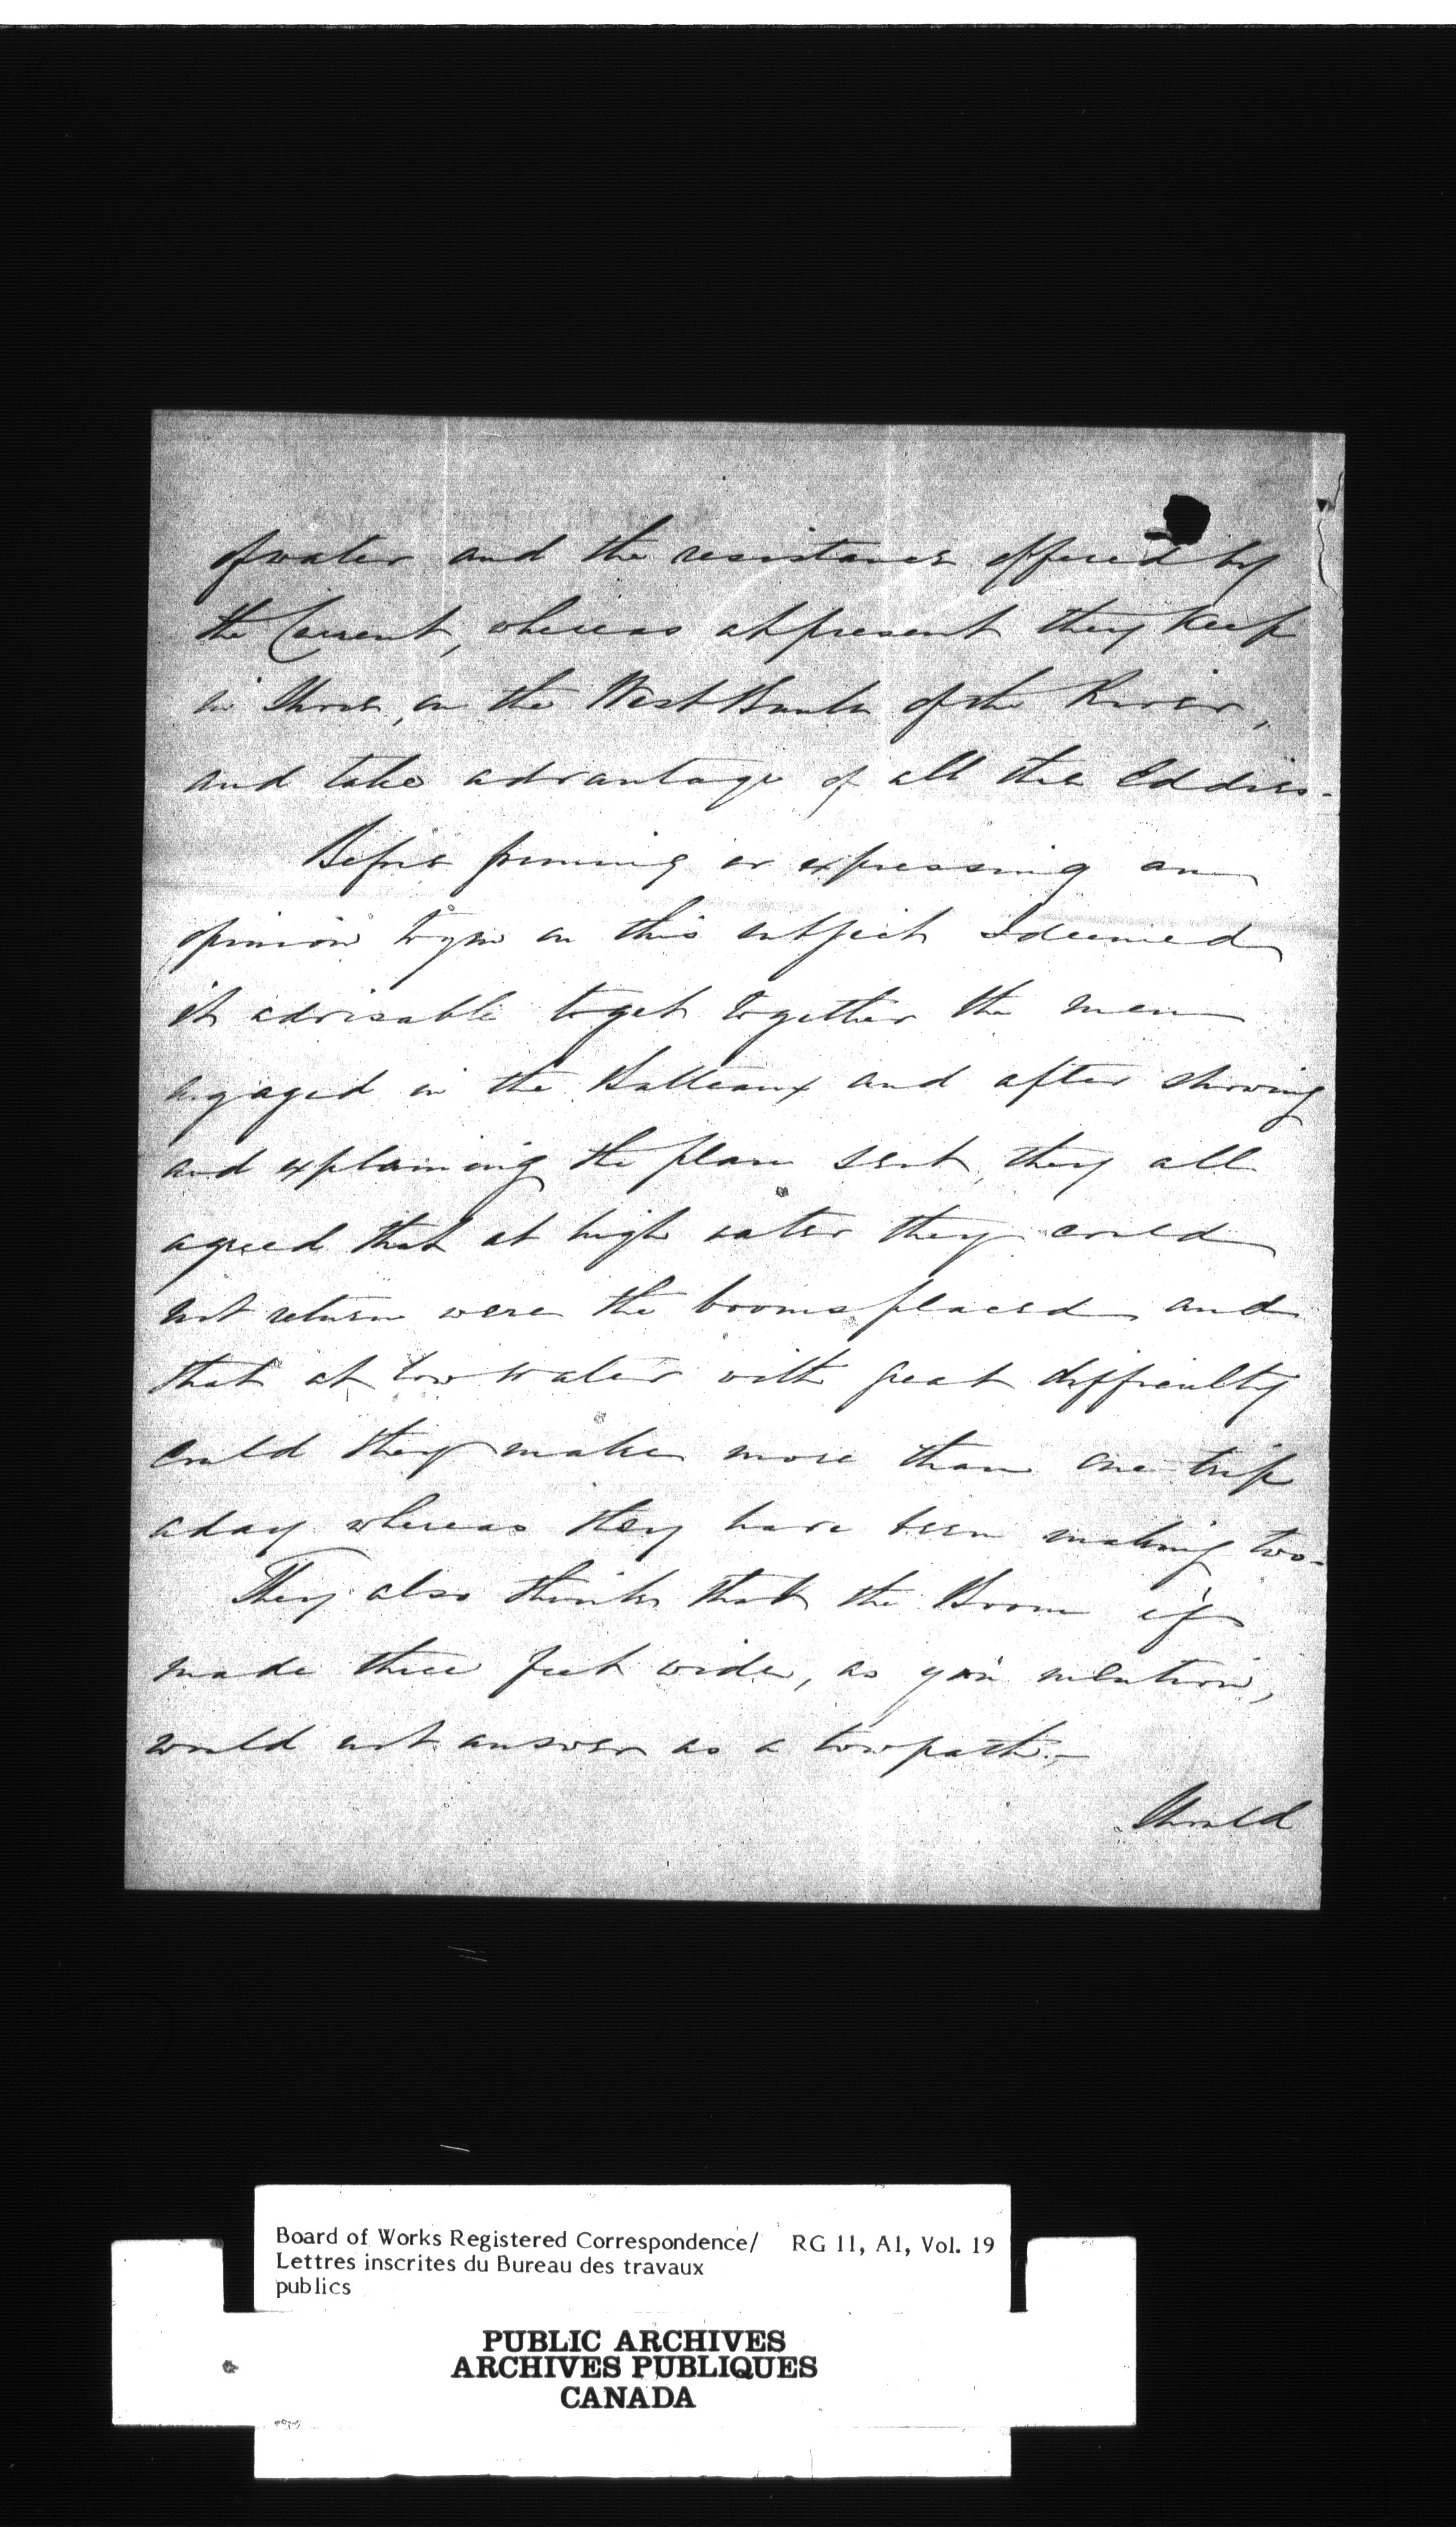 of water and the resistance offered by
the Current, whereas at present they keep
in Shore, on the West Bank of the River,
and take advantage of all the Eddies.
Before forming or expressing an
opinion to you on this subject I deemed
it advisable to get together the men
engaged in the Batteaux and after showing
and explaining the plan sent, they all
agreed that at high water they could
not return were the booms placed and
that at low water with great difficulty
could they make more than one trip
a day whereas they have been making two.
They also think that the Boom if
made three feet wide, as you mention,
would not answer as a towpath.
Should
Board of Works Registered Correspondence/ RG 11, A1, Vol. 19
Lettres inscrites du Bureau des travaux
publics
PUBLIC ARCHIVES
ARCHIVES PUBLIQUES
CANADA